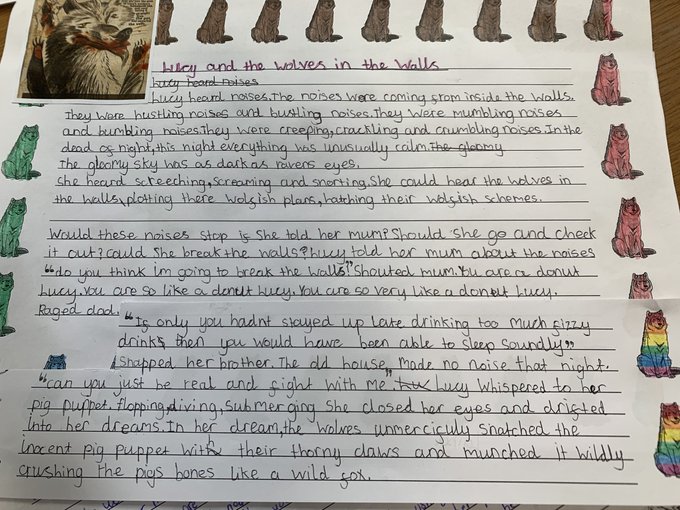 Lucy and the wolves in the walls
Lucy heard noises
Lucy heard noises. The noises were coming from inside the walls.
They were hustling noises and bustling noises. They were mumbling noises
and bumbling noises. They were creeping, crackling and crumbling noises. In the
dead of night, this night everything was unusually calm. The gloomy
The gloomy sky was as dark as ravens eyes.
She heard screeching, screaming and snorting. She could hear the wolves in
the walls, plotting there wolfish plans, hatching their wolfish schemes.
Would these noises stop if she told her mum? Should she go and check
it out? Could she break the walls? Lucy told her mum about the noises
"do you think im going to break the walls!" Shouted mum. You are a donut
Lucy. You are so like a donut Lucy. You are so very like a donut Lucy.
Raged dad.
"If only you hadnt stayed up late drinking too much fizzy
drinks then you would have been able to sleep soundly"
snapped her brother. The old house made no noise that night.
"can you just be real and fight with me" Lucy whispered to her
pig puppet. flopping, diving, submerging she closed her eyes and drifted
into her dreams. In her dream, the wolves unmercifuly snatched the
inocent pig puppet with their thorny claws and munched it wildly
crushing the pigs bones like a wild fox.